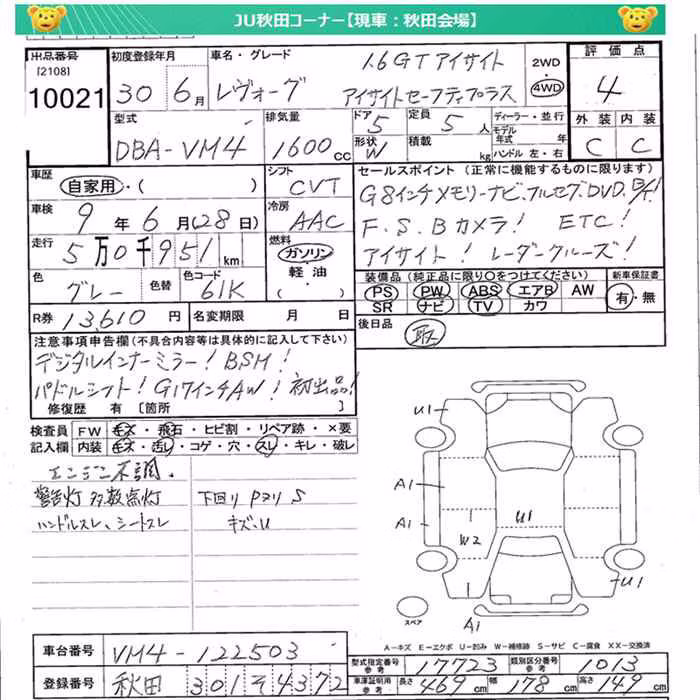 JU秋田コーナー【現車：秋田会場】
出品番号
[2108]
10021
初度登録年月
30 6月
車名・グレード
レヴォーグ
1.6GT アイサイト
アイサイトセーフティプラス
2WD
4WD
評価点
4
外装 内装
C C
型式
DBA-VM4
排気量
1600cc
ドア 5
形状 W
定員 5人
積載 kg
ディーラー・並行
モデル年式 年
ハンドル 左・右
車歴
自家用・( )
シフト
CVT
車検
9年6月(28日)
冷房
AAC
走行
5万0千951km
燃料
ガソリン
軽油
・( )
色
グレー
色替
色コード
61K
R券 13,610円
名変期限 月 日
セールスポイント（正常に機能するものに限ります）
G8インチメモリーナビ、フルセグ、DVD、
F.S.Bカメラ! ETC!
アイサイト! レーダークルーズ!
装備品（純正品に限り〇をつけてください）
PS PW ABS エアB AW
SR ナビ TV カワ
新車保証書
有・無
後日品
取
注意事項申告欄（不具合内容等は具体的に記入して下さい）
デジタルインナーミラー! BSM!
パドルシフト! G17インチAW! 初出品!
修復歴 有 [箇所 ]
検査員 FW キズ・飛石・ヒビ割・リペア跡・×要
記入欄 内装 キズ・汚レ・コゲ・穴・スレ・キレ・破レ
エンジン不調.
警告灯 多数点灯
下回り Pマリ S
ハンドルスレ、シートスレ
キズ、U
U1
A1
A1
U1
W2
U1
A1
スペア
A－キズ E－エクボ U－凹み W－補修跡 S－サビ C－腐食 XX－交換済
車台番号 VM4-122503
登録番号 秋田 301 そ 4372
型式指定番号 参考 17723
類別区分番号 参考 1013
車庫証明用 参考 長さ 469cm 幅 178cm 高さ 149cm